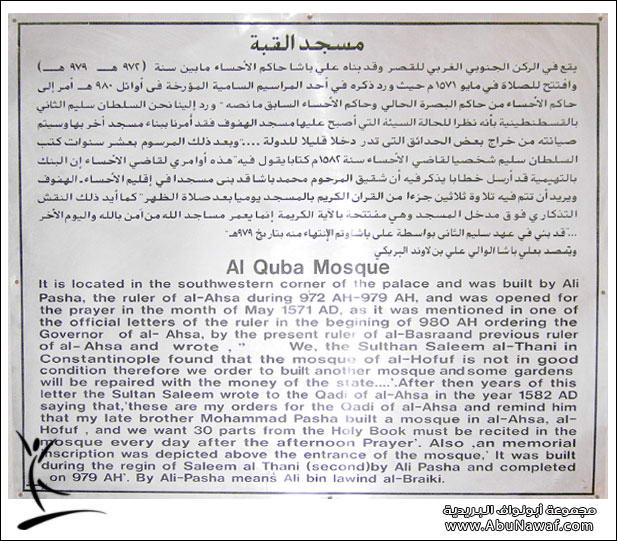 مسجد القبة
يقع في الركن الجنوبي الغربي للقصر وقد بناه علي باشا حاكم الأحساء مابين سنة (٩٧٢ هـ ٩٧٩ هـ)
وافتتح للصلاة في مايو ١٥٧١م حيث ورد ذكره في أحد المراسيم السامية المؤرخة في أوائل ٩٨٠ هـ أمر إلى
حاكم الأحساء من حاكم البصرة الحالي وحاكم الأحساء السابق ما نصه - ورد إلينا نحن السلطان سليم الثاني
بالقسطنطينية بأنه نظرا للحالة السيئة التي أصبح عليها مسجد الهفوف فقد أمرنا ببناء مسجد أخر بها وسيتم
صيانته من خراج بعض الحدائق التى تدر دخلا قليلا للدولة ....-وبعد ذلك المرسوم بعشر سنوات كتب
السلطان سليم شخصيا لقاضي الأحساء سنة ١٥٨٢م كتابا يقول فيه" هذه أوامري لقاضي الأحساء إن البنك
بالتهيمية قد أرسل خطابا يذكر فيه أن شقيق المرحوم محمد باشا قد بنى مسجدا في إقليم الأحساء - الهفوف
ويريد أن تتم فيه تلاوة ثلاثين جزءا من القران الكريم بالمسجد يوميا بعد صلاة الظهر" كما أيد ذلك النقش
التذكاري فوق مدخل المسجد وهي مفتتحة بالآية الكريمة إنما يعمر مساجد الله من آمن بالله واليوم الأخر
..."قد بني في عهد سليم الثاني بواسطة على باشا وتم الإنتهاء منه بتاريخ ٩٧٩هـ"
ويقصد بعلي باشا الوالي علي بن لاوند البريكي
Al Quba Mosque
It is located in the southwestern corner of the palace and was built by Ali
Pasha, the ruler of al-Ahsa during 972 AH-979 AH, and was opened for
the prayer in the month of May 1571 AD, as it was mentioned in one of
the official letters of the ruler in the begining of 980 AH ordering the
Governor of al- Ahsa, by the present ruler of al-Basraand previous ruler
of al-Ahsa and wrote ," We, the Sulthan Saleem al-Thani in
Constantinople found that the mosque of al-Hofuf is not in good
condition therefore we order to built another mosque and some gardens
will be repaired with the money of the state....'.After then years of this
letter the Sultan Saleem wrote to the Qadi of al-Ahsa in the year 1582 AD
saying that,'these are my orders for the Qadi of al-Ahsa and remind him
that my late brother Mohammad Pasha built a mosque in al-Ahsa, al-
Hofuf , and we want 30 parts from the Holy Book must be recited in the
mosque every day after the afternoon Prayer'. Also ,an memorial
inscription was depicted above the entrance of the mosque,' It was built
during the regin of Saleem al Thani (second)by Ali Pasha and completed
on 979 AH'. By Ali-Pasha means Ali bin lawind al-Braiki.
مجموعة أبونواف البريدية
www.AbuNawaf.com